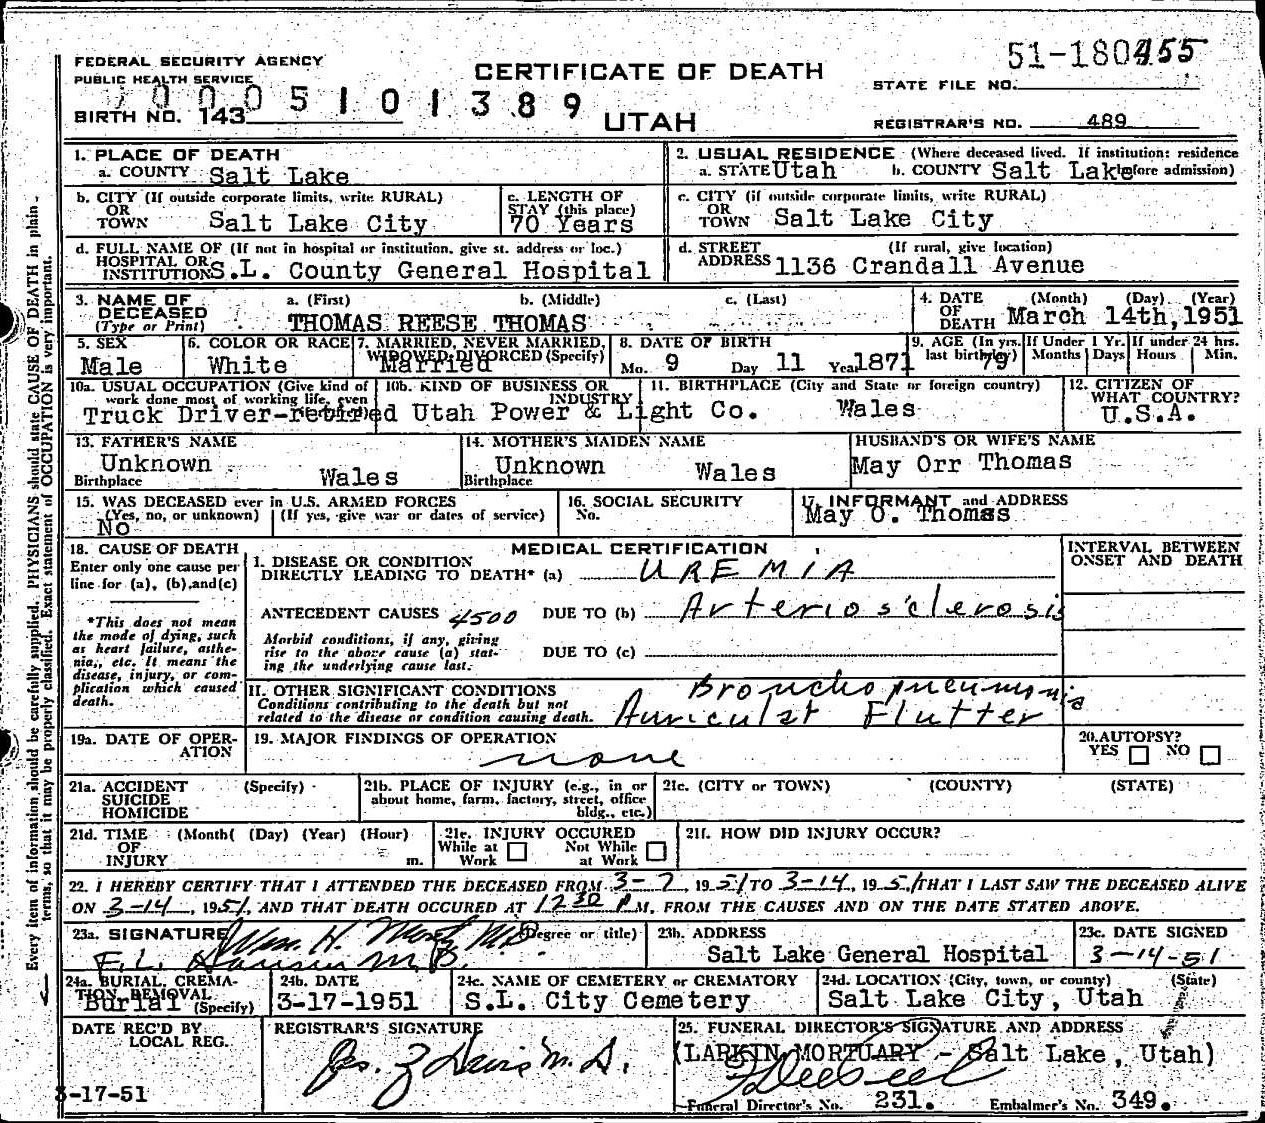 51-180455
FEDERAL SECURITY AGENCY
PUBLIC HEALTH SERVICE
CERTIFICATE OF DEATH
STATE FILE NO.
0005101389
BIRTH NO. 143
UTAH
REGISTRAR'S NO. 489
1. PLACE OF DEATH
a. COUNTY Salt Lake
2. USUAL RESIDENCE (Where deceased lived. If institution: residence before admission)
a. STATE Utah b. COUNTY Salt Lake
b. CITY (If outside corporate limits, write RURAL)
OR
TOWN Salt Lake City
c. LENGTH OF
STAY (this place)
70 Years
c. CITY (if outside corporate limits, write RURAL)
OR
TOWN Salt Lake City
d. FULL NAME OF (If not in hospital or institution, give st. address or loc.)
HOSPITAL OR
INSTITUTION S.L. County General Hospital
d. STREET (If rural, give location)
ADDRESS 1136 Crandall Avenue
3. NAME OF
DECEASED
(Type or Print)
a. (First) b. (Middle) c. (Last)
THOMAS REESE THOMAS
4. DATE (Month) (Day) (Year)
OF
DEATH March 14th, 1951
5. SEX
Male
6. COLOR OR RACE
White
7. MARRIED, NEVER MARRIED,
WIDOWED, DIVORCED (Specify)
Married
8. DATE OF BIRTH
Mo. 9 Day 11 Year 1871
9. AGE (In yrs.
last birthday)
79
If Under 1 Yr.
Months Days
If under 24 hrs.
Hours Min.
10a. USUAL OCCUPATION (Give kind of
work done most of working life, even
if retired)
Truck Driver-retired
10b. KIND OF BUSINESS OR
INDUSTRY
Utah Power & Light Co.
11. BIRTHPLACE (City and State or foreign country)
Wales
12. CITIZEN OF
WHAT COUNTRY?
U.S.A.
13. FATHER'S NAME
Unknown
Birthplace Wales
14. MOTHER'S MAIDEN NAME
Unknown
Birthplace Wales
HUSBAND'S OR WIFE'S NAME
May Orr Thomas
15. WAS DECEASED ever in U.S. ARMED FORCES
(Yes, no, or unknown) (If yes, give war or dates of service)
No
16. SOCIAL SECURITY
No.
17. INFORMANT and ADDRESS
May O. Thomas
18. CAUSE OF DEATH
Enter only one cause per
line for (a), (b), and (c)
*This does not mean
the mode of dying, such
as heart failure, asthe-
nia, etc. It means the
disease, injury, or com-
plication which caused
death.
MEDICAL CERTIFICATION
INTERVAL BETWEEN
ONSET AND DEATH
I. DISEASE OR CONDITION
DIRECTLY LEADING TO DEATH* (a) UREMIA
ANTECEDENT CAUSES 4500 DUE TO (b) Arteriosclerosis
Morbid conditions, if any, giving
rise to the above cause (a) stat-
ing the underlying cause last.
DUE TO (c)
II. OTHER SIGNIFICANT CONDITIONS
Conditions contributing to the death but not
related to the disease or condition causing death.
Bronchopneumonia
Auricular Flutter
19a. DATE OF OPER-
ATION
19. MAJOR FINDINGS OF OPERATION
none
20. AUTOPSY?
YES NO
21a. ACCIDENT (Specify)
SUICIDE
HOMICIDE
21b. PLACE OF INJURY (e.g., in or
about home, farm, factory, street, office
bldg., etc.)
21c. (CITY or TOWN) (COUNTY) (STATE)
21d. TIME (Month( (Day) (Year) (Hour)
OF
INJURY m.
21e. INJURY OCCURED
While at Work Not While at Work
21f. HOW DID INJURY OCCUR?
22. I HEREBY CERTIFY THAT I ATTENDED THE DECEASED FROM 3-7, 1951 TO 3-14, 1951, THAT I LAST SAW THE DECEASED ALIVE
ON 3-14, 1951, AND THAT DEATH OCCURED AT 1230 P M. FROM THE CAUSES AND ON THE DATE STATED ABOVE.
23a. SIGNATURE (Degree or title)
Wm. H. M.D.
F.L. M.D.
23b. ADDRESS
Salt Lake General Hospital
23c. DATE SIGNED
3-14-51
24a. BURIAL, CREMA-
TION, REMOVAL
(Specify)
Burial
24b. DATE
3-17-1951
24c. NAME OF CEMETERY or CREMATORY
S.L. City Cemetery
24d. LOCATION (City, town, or county) (State)
Salt Lake City, Utah
DATE REC'D BY
LOCAL REG.
3-17-51
REGISTRAR'S SIGNATURE
M.D.
25. FUNERAL DIRECTOR'S SIGNATURE AND ADDRESS
(LARKIN MORTUARY - Salt Lake, Utah)
Funeral Director's No. 231. Embalmer's No. 349.
Every item of information should be carefully supplied. PHYSICIANS should state CAUSE OF DEATH in plain
terms, so that it may be properly classified. Exact statement of OCCUPATION is very important.